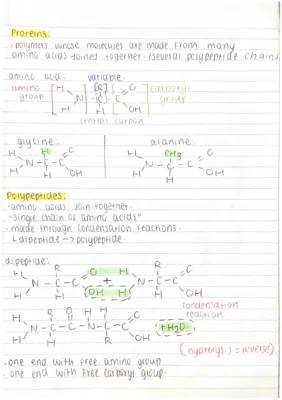 Proteins:
· polymers whose molecules are made from many
amino acids joined together. (several polypeptide chains)
amino acid: variable
amino group
H H N [R] C H C O OH
carboxyl group
central carbon
glycine: alanine:
H H N H C H C O OH
H H N CH3 C H C O OH
Polypeptides:
· amino acids join together.
- "single chain of amino acids"
· made through condensation reactions.
↳ dipeptide → polypeptide
dipeptide:
H H N R C H C O OH + H H N R C H C O OH
condensation
reaction
H H N R C H C O H N R C H C O OH + H2O
(hydrolysis = reverse)
· one end with free amino group
· one end with free carboxyl group.